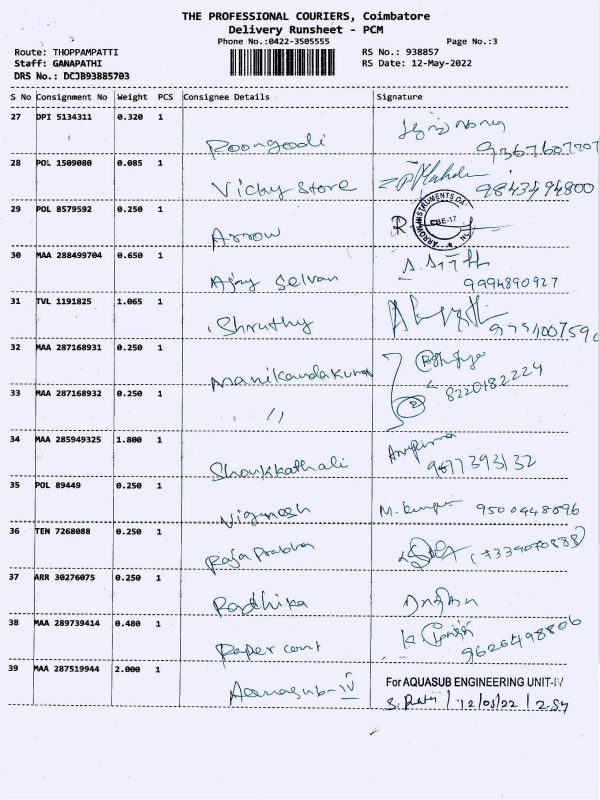 THE PROFESSIONAL COURIERS, Coimbatore
Delivery Runsheet - PCM
Phone No.:0422-3505555 Page No.:3
Route: THOPPAMPATTI RS No.: 938857
Staff: GANAPATHI RS Date: 12-May-2022
DRS No.: DCJB93885703
S No Consignment No Weight PCS Consignee Details Signature
27 DPI 5134311 0.320 1
Poongodi
28 POL 1509080 0.085 1
Vicky Store 9843494800
29 POL 8579592 0.250 1
Arrow ARROW INSTRUMENTS CBE-17
30 MAA 288499704 0.650 1
Ajay Selvan 9994890927
31 TVL 1191825 1.065 1
Shruthy
32 MAA 287168931 0.250 1
Manikandakumar
8220182224
33 MAA 287168932 0.250 1
11
34 MAA 285949325 1.800 1
Shoukkathali 9677393132
35 POL 89449 0.250 1
Vignesh 9500448896
36 TEN 7268088 0.250 1
Raja Prabha
37 ARR 30276075 0.250 1
Radhika
38 MAA 289739414 0.480 1
Paper cont 9626498806
39 MAA 287519944 2.000 1
Aquasub-IV
For AQUASUB ENGINEERING UNIT-IV